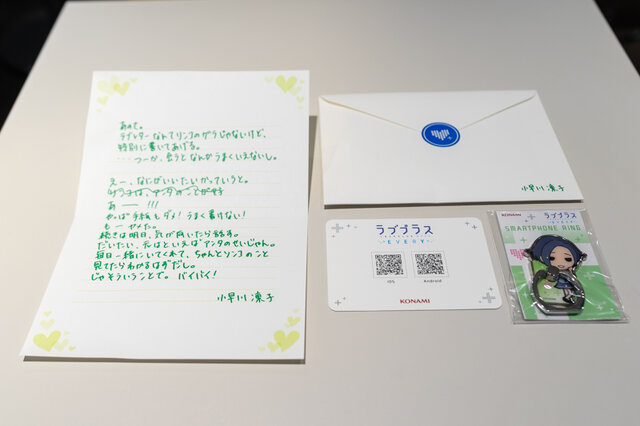 あのさ。
ラブレターなんてリンコのガラじゃないけど、
特別に書いてあげる。
・・・つーか、会うとなんかうまくいえないし。
えー、なにがいいたいかっていうと。
リンコは、アンタのことが好
あ――!!!
やっぱ手紙もダメ!うまく書けない!
もーやめた。
続きは明日、気が向いたら話す。
だいたい、元はといえばアンタのせいじゃん。
毎日一緒にいてくれて、ちゃんとリンコのこと
見てたらわかるはずだし。
じゃそういうことで。バイバイ!
小早川凛子
小早川凛子
ラブプラス
EVERY
iOS
Android
KONAMI
KONAMI
ラブプラス
EVERY
SMARTPHONE RING